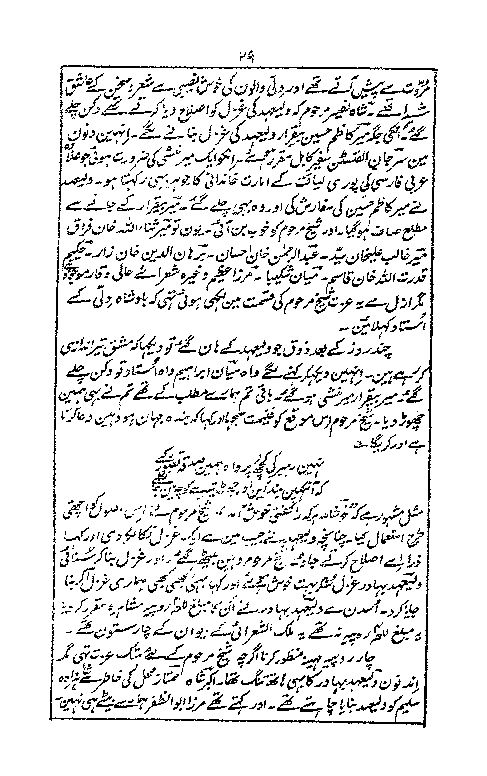 ۲۹
مروت سے پیش آتے تھے اور دلی والوں کی خوش نصیبی سے شعر و سخن کے عاشق
شیدا تھے۔ شاہ نصیر مرحوم کہ ولیعہد کی غزل کو اصلاح دیا کرتے تھے دکن چلے
گئے۔ میر کاظم حسین بیقرار ولیعہد کی غزل بناتے تھے۔ انہیں دنوں
مین سرجان الفنسٹن سفیر کابل مقرر ہوئے۔ انکو ایک میر منشی کی ضرورت ہوئی جو علاوہ
عربی فارسی کی پوری لیاقت کے امارت خاندانی کا جوہر بھی رکہتا ہو۔ ولیعہد
نے میر کاظم حسین کی سفارش کی اور وہ بھی چلے گئے۔ میر بیقرار کے جانے سے
مطلع صاف ہوگیا۔ اور شیخ مرحوم کو خوب بن آئی۔ یوں تو میر ثناء اللہ خان فراق
میر غالب علیخان سید۔ عبدالرحمن خان احسان۔ برہان الدین خان زار۔ حکیم
قدرت اللہ خان قاسم۔ میان شکیبا۔ مرزا عظیم وغیرہ شعرائے عالی وقار موجود تھے
مگر ازل سے یہ عزت شیخ مرحوم کی قسمت مین لکہی ہوئی تہی کہ بادشاہ دلی کے
استاد کہلائین۔
چند روز کے بعد ذوق جو ولیعہد کے ہان گئے تو دیکہا کہ مشق تیر اندازی
کر رہے ہین۔ انہین دیکہکر کہنے لگے واہ میان ابراہیم واہ استاد تو دکن چلے
گئے میر بیقرار میر منشی ہوگئے باقی تم ہمارے مطلب کے تھے تم نے بہی ہمین
چہوڑ دیا۔ شیخ مرحوم اس موقع کو غنیمت سمجہا اور کہا کہ بندہ جہان ہو وہین دعا کرتا
ہے اور کریگا۔
مثل مشہور ہے کہ شیخ مرحوم نے اس اصول کو اچھی
طرح استعمال کیا۔ چنانچہ ولیعہد نے جیب مین سے ایک غزل نکالکر دی اور کہا
ذرا اسے اصلاح کرتے جاؤ شیخ مرحوم وہین بیٹھ گئے اور غزل بنا کر سنائی
ولیعہد بہادر غزل سنکر بہت خوش ہوئے اور کہا بہئی کبہی کبہی ہماری غزل کو بنا
جایا کرو۔ اسدن سے ولیعہد بہادر نے انکا مبلغ للعہ روپیہ مشاہرہ مقرر کر دیا
یہ مبلغ للعہ روپیہ نہ تھے یہ ملک الشعرائی کے دیوان کے چار ستون تھے۔
چار روپیہ مہینہ منظور کرنا اگرچہ شیخ مرحوم کے لئے ننگ عزت تہی مگر
اندنون ولیعہد بہادر کا بہی ہاتہ تنگ تہا۔ اکبر شاہ ممتاز محل کی خاطر سے شہزادہ
سلیم کو ولیعہد بنایا چاہتے تھے۔ اور کہتے تھے مرزا ابو الظفر ہمارے بیٹے ہی نہین۔